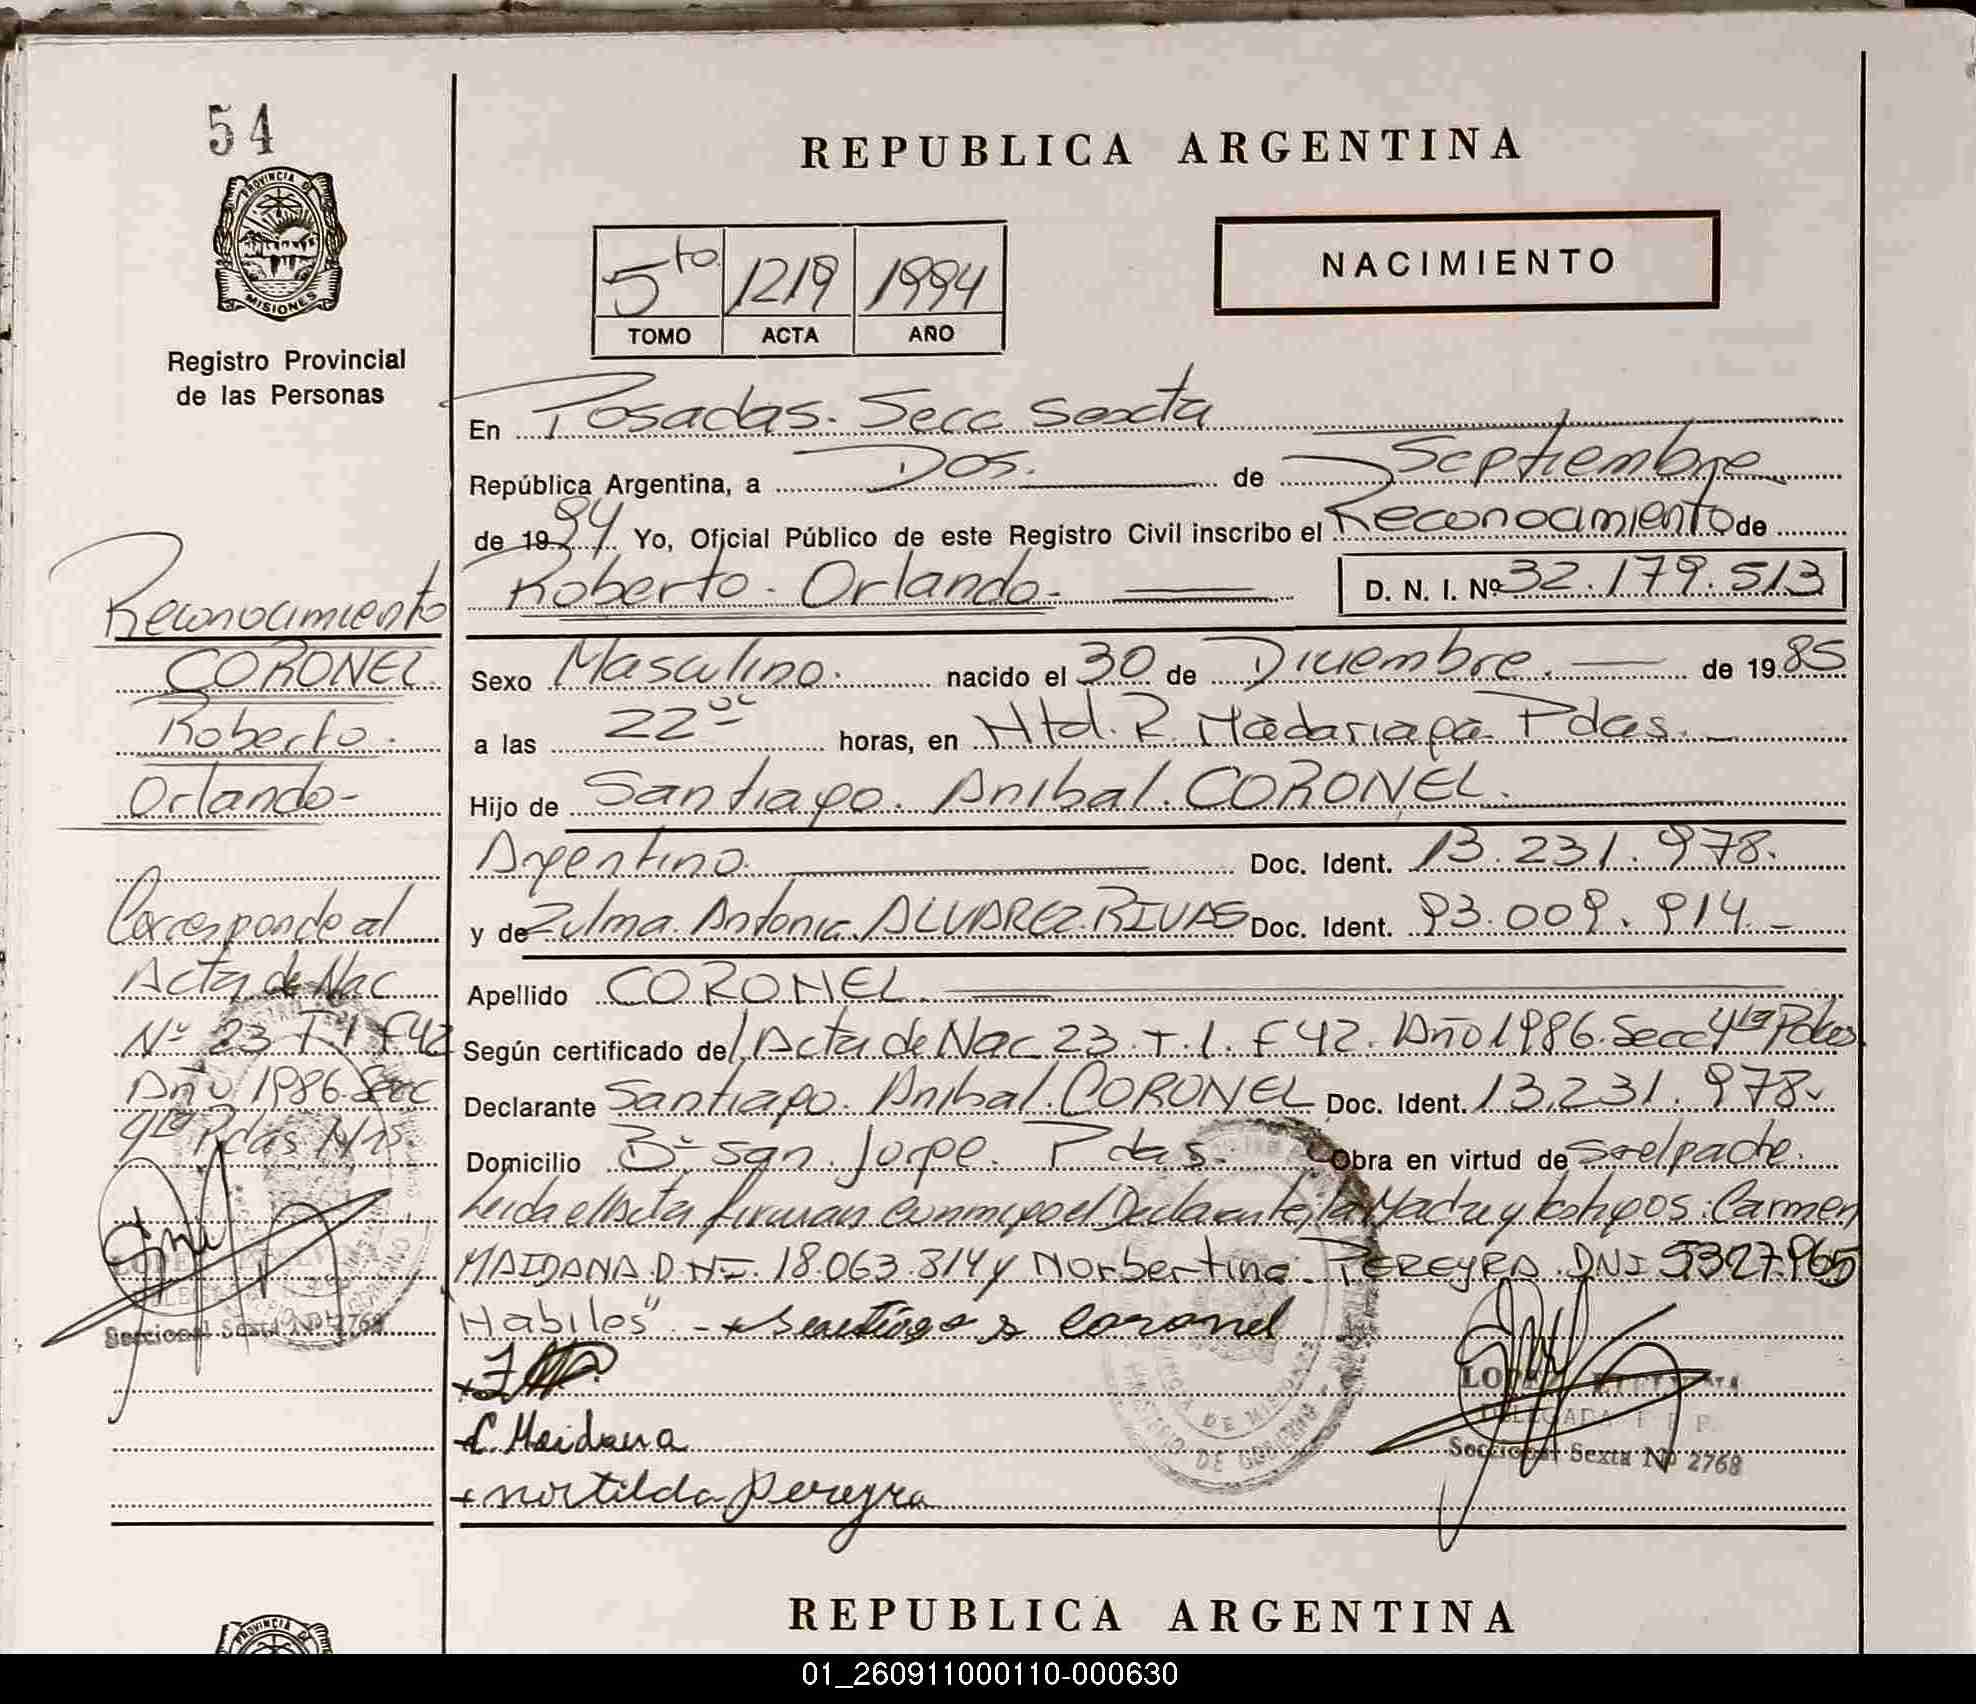 54
PROVINCIA DE
MISIONES
Registro Provincial
de las Personas
Reconocimiento
CORONEL
Roberto.
Orlando-
Corresponde al
Acta de Nac
Nº 23 T 1 F 42
Año 1986 Secc
4ta Pdas Mns
Seccional Sexta Nº 2768
REPUBLICA ARGENTINA
5to 1219 1994
TOMO ACTA AÑO
NACIMIENTO
En Posadas. Secc Sexta
República Argentina, a Dos. de Septiembre
de 1994 Yo, Oficial Público de este Registro Civil inscribo el Reconocimiento de
Roberto. Orlando. D. N. I. Nº 32.179.513
Sexo Masculino. nacido el 30 de Diciembre. de 1985
a las 22 horas, en Htal. R. Madariaga. Pdas.
Hijo de Santiago. Anibal. CORONEL.
Argentino. Doc. Ident. 13.231.978.
y de Zulma. Antonia. ALVAREZ. RIVAS Doc. Ident. 93.009.914.
Apellido CORONEL.
Según certificado del Acta de Nac 23. T. 1. F 42. Año 1986. Secc 4ta Pdas
Declarante Santiago. Anibal. CORONEL Doc. Ident. 13.231.978.
Domicilio Bº San. Jorge. Pdas. Obra en virtud de Ser el padre.
Leida el Acta firman conmigo el Declarante, la Madre y testigos: Carmen
MAIDANA. D.N.I. 18.063.814 y Norbertina. PEREYRA. DNI 5327965
Habiles" - x Santiago a coronel
x C. Maidana
x nortilda pereyra
PROVINCIA DE MISIONES
MINISTERIO DE GOBIERNO
LOPEZ
DELEGADA
Seccional Sexta Nº 2768
REPUBLICA ARGENTINA
PROVINCIA
01_260911000110-000630